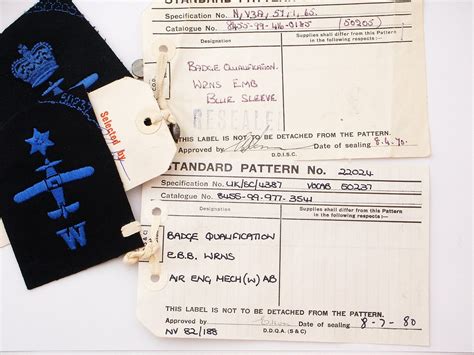 STANDARD PATTERN
Specification No. N/V3A/57/1/65.
Catalogue No. 8455-99-416-0185 (50205)
Designation
Supplies shall differ from this Pattern in the following respects
BADGE QUALIFICATION.
WRNS EMB
BLUE SLEEVE
RESEALED
THIS LABEL IS NOT TO BE DETACHED FROM THE PATTERN.
Approved by
Date of sealing 8.4.70.
D.D.I.S.C.
Selected by
W
STANDARD PATTERN No. 22024
Specification No. UK/SC/4387 VOCAB 50237
Catalogue No. 8455-99-977-3541
Designation
Supplies shall differ from this Pattern in the following respects
BADGE QUALIFICATION
E.B.B. WRNS
AIR ENG MECH(W) AB
THIS LABEL IS NOT TO BE DETACHED FROM THE PATTERN.
Approved by
Date of sealing 8-7-80
NV 82/188
D.D.Q.A. (S & C)